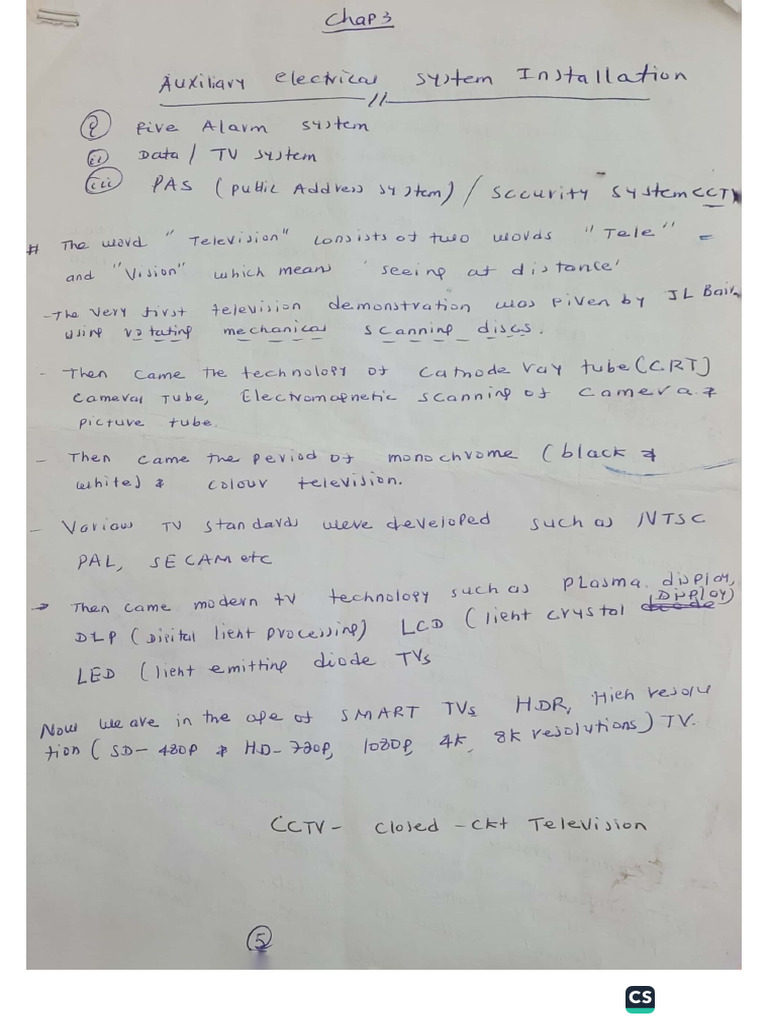 Chap 3
Auxiliary electrical system Installation
i Fire Alarm system
ii Data / TV system
iii PAS (Public Address system) / Security system CCTV
# The word "Television" consists of two words "Tele"
and "Vision" which means 'seeing at distance'
- The very first television demonstration was given by JL Baird
using rotating mechanical scanning discs.
- Then came the technology of cathode ray tube (C.RT)
camera tube, Electromagnetic scanning of camera &
picture tube.
- Then came the period of monochrome (black &
white) & colour television.
- Various TV standards were developed such as NTSC
PAL, SECAM etc
→ Then came modern tv technology such as plasma display,
DLP (Digital light processing) LCD (light crystal Display)
LED (light emitting diode TVs
Now we are in the age of SMART TVs HDR, High resolu
tion (SD- 480P & HD- 720P, 1080P, 4K, 8K resolutions) TV.
CCTV - Closed - Ckt Television
5
CS